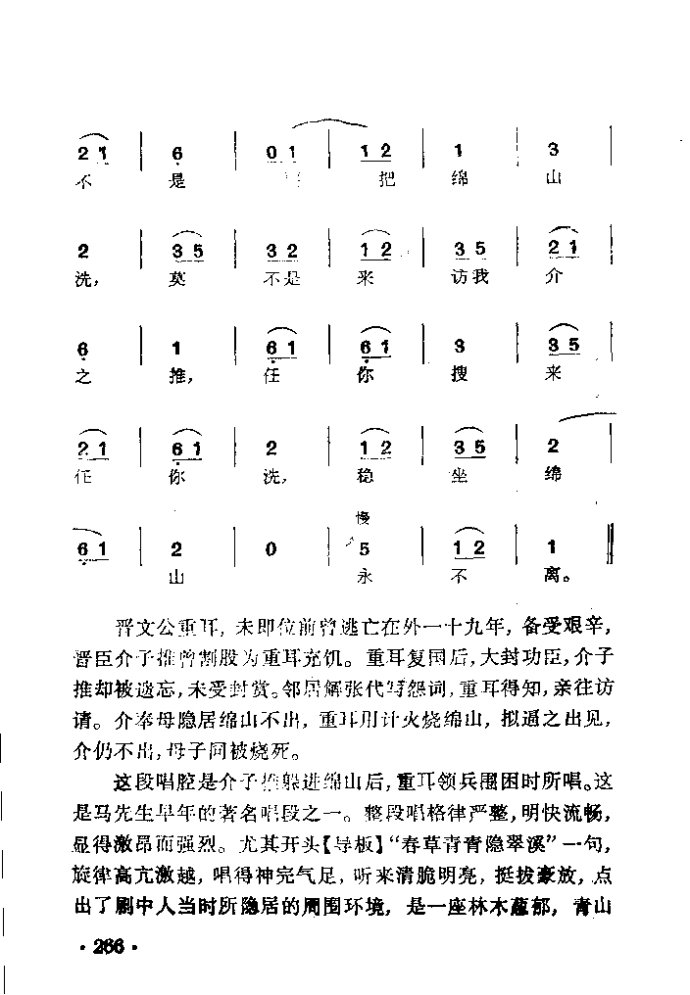 2 1 | 6 | 0 1 | 1 2 | 1 | 3 |
不 是 把 绵 山
2 | 3 5 | 3 2 | 1 2 | 3 5 | 2 1 |
洗, 莫 不是 来 访我 介
6 | 1 | 6 1 | 6 1 | 3 | 3 5 |
之 推, 任 你 搜 来
2 1 | 6 1 | 2 | 1 2 | 3 5 | 2
任 你 洗, 稳 坐 绵
慢
6 1 | 2 | 0 | 5 | 1 2 | 1 ‖
山 永 不 离。
晋文公重耳, 未即位前曾逃亡在外一十九年, 备受艰辛,
晋臣介子推曾割股为重耳充饥。重耳复国后, 大封功臣, 介子
推却被遗忘, 未受封赏。邻居解张代写怨词, 重耳得知, 亲往访
请。介奉母隐居绵山不出, 重耳用计火烧绵山, 拟逼之出见,
介仍不出, 母子同被烧死。
这段唱腔是介子推躲进绵山后, 重耳领兵围困时所唱。这
是马先生早年的著名唱段之一。整段唱格律严整, 明快流畅,
显得激昂而强烈。尤其开头【导板】“春草青青隐翠溪”一句,
旋律高亢激越, 唱得神完气足, 听来清脆明亮, 挺拔豪放, 点
出了剧中人当时所隐居的周围环境, 是一座林木蕴郁, 青山
·266·